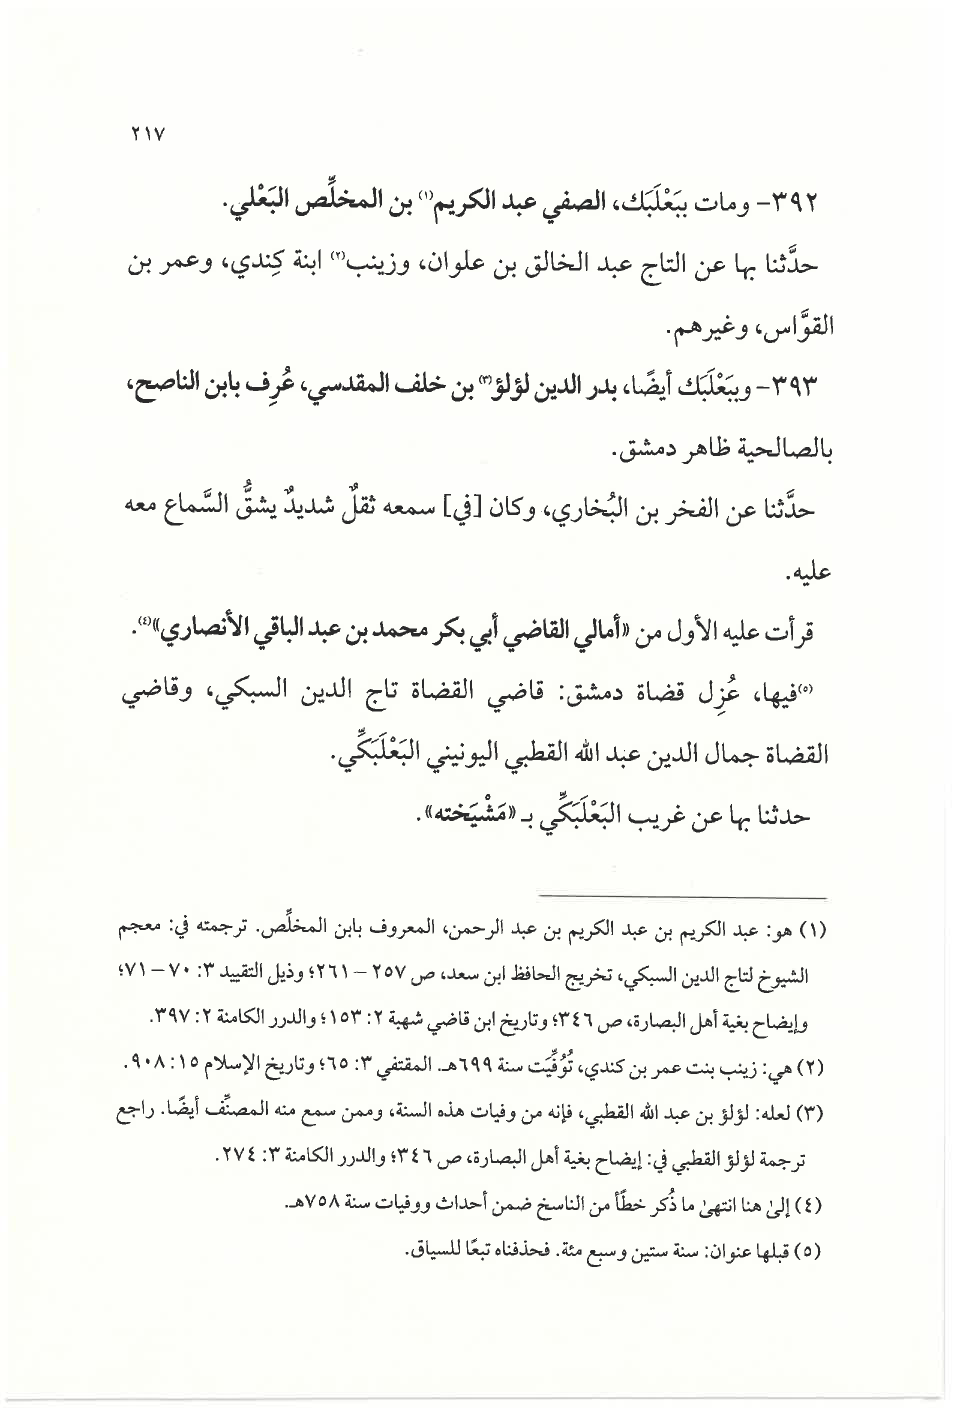 ٢١٧
٣٩٢- ومات ببَعْلَبَك، الصفي عبد الكريم(١) بن المخلِّص البَعْلي.
حدَّثنا بها عن التاج عبد الخالق بن علوان، وزينب(٢) ابنة كِندي، وعمر بن
القوَّاس، وغيرهم.
٣٩٣- وببَعْلَبَك أيضًا، بدر الدين لؤلؤ(٣) بن خلف المقدسي، عُرِف بابن الناصح،
بالصالحية ظاهر دمشق.
حدَّثنا عن الفخر بن البُخاري، وكان [في] سمعه ثقلٌ شديدٌ يشقُّ السَّماع معه
عليه.
قرأت عليه الأول من «أمالي القاضي أبي بكر محمد بن عبد الباقي الأنصاري»(٤).
(٥)فيها، عُزِل قضاة دمشق: قاضي القضاة تاج الدين السبكي، وقاضي
القضاة جمال الدين عبد الله القطبي اليونيني البَعْلَبَكِّي.
حدثنا بها عن غريب البَعْلَبَكِّي بـ «مَشْيَخته».
(١) هو: عبد الكريم بن عبد الكريم بن عبد الرحمن، المعروف بابن المخلِّص. ترجمته في: معجم
الشيوخ لتاج الدين السبكي، تخريج الحافظ ابن سعد، ص ٢٥٧ – ٢٦١؛ وذيل التقييد ٣: ٧٠ – ٧١؛
وإيضاح بغية أهل البصارة، ص ٣٤٦؛ وتاريخ ابن قاضي شهبة ٢: ١٥٣؛ والدرر الكامنة ٢: ٣٩٧.
(٢) هي: زينب بنت عمر بن كندي، تُوُفِّيَت سنة ٦٩٩هـ. المقتفي ٣: ٦٥؛ وتاريخ الإسلام ١٥: ٩٠٨.
(٣) لعله: لؤلؤ بن عبد الله القطبي، فإنه من وفيات هذه السنة، وممن سمع منه المصنِّف أيضًا. راجع
ترجمة لؤلؤ القطبي في: إيضاح بغية أهل البصارة، ص ٣٤٦؛ والدرر الكامنة ٣: ٢٧٤.
(٤) إلىٰ هنا انتهىٰ ما ذُكر خطأً من الناسخ ضمن أحداث ووفيات سنة ٧٥٨هـ.
(٥) قبلها عنوان: سنة ستين وسبع مئة. فحذفناه تبعًا للسياق.